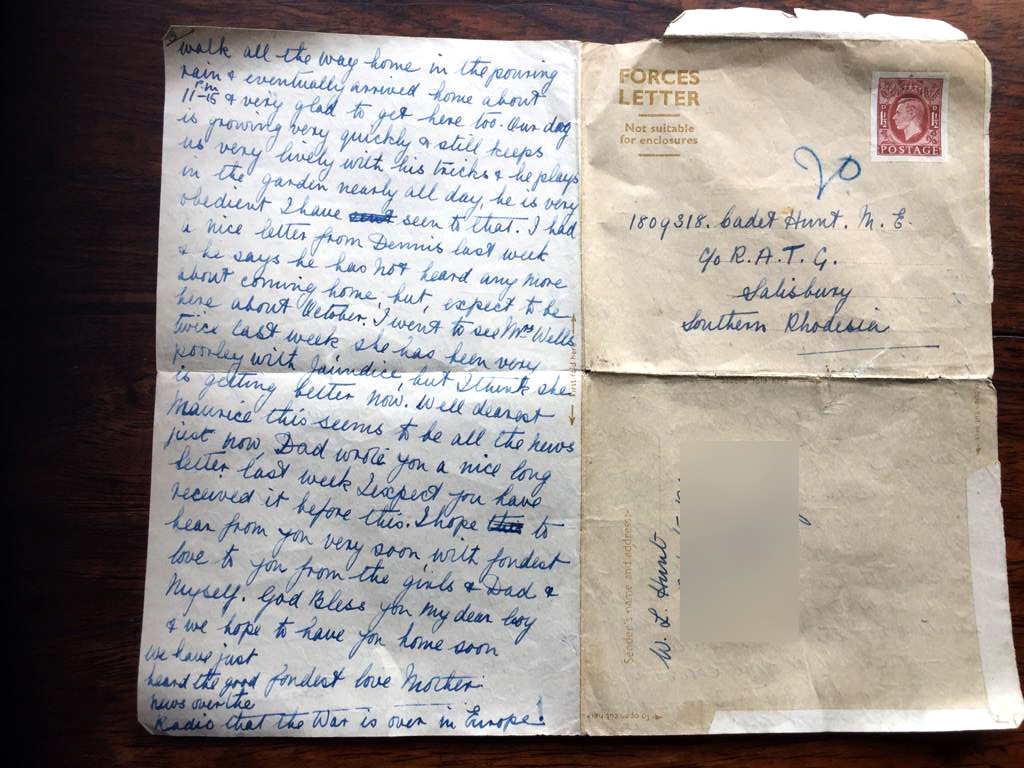 walk all the way home in the pouring
rain & eventually arrived home about
11-15 P.m & very glad to get here too. Our dog
is growing very quickly & still keeps
us very lively with his tricks & he plays
in the garden nearly all day, he is very
obedient I have seen to that. I had
a nice letter from Dennis last week
& he says he has not heard any more
about coming home, but, expect to be
here about October. I went to see Mrs Wells
twice last week she has been very
poorley with Jaundice, but I think she
is getting better now. Well dearest
Maurice this seems to be all the news
just now, Dad wrote you a nice long
letter last week I expect you have
received it before this. I hope to
hear from you very soon with fondest
love to you from the girls & Dad &
Myself. God Bless you my dear boy
& we hope to have you home soon
fondest love Mother
we have just
heard the good
news over the
Radio that the War is over in Europe!
FORCES
LETTER
Not suitable
for enclosures
POSTAGE
20
1809318. Cadet Hunt. M. E.
C/o R.A.T.G.
Salisbury
Southern Rhodesia
Sender's name and address
W. L. Hunt
To open cut here